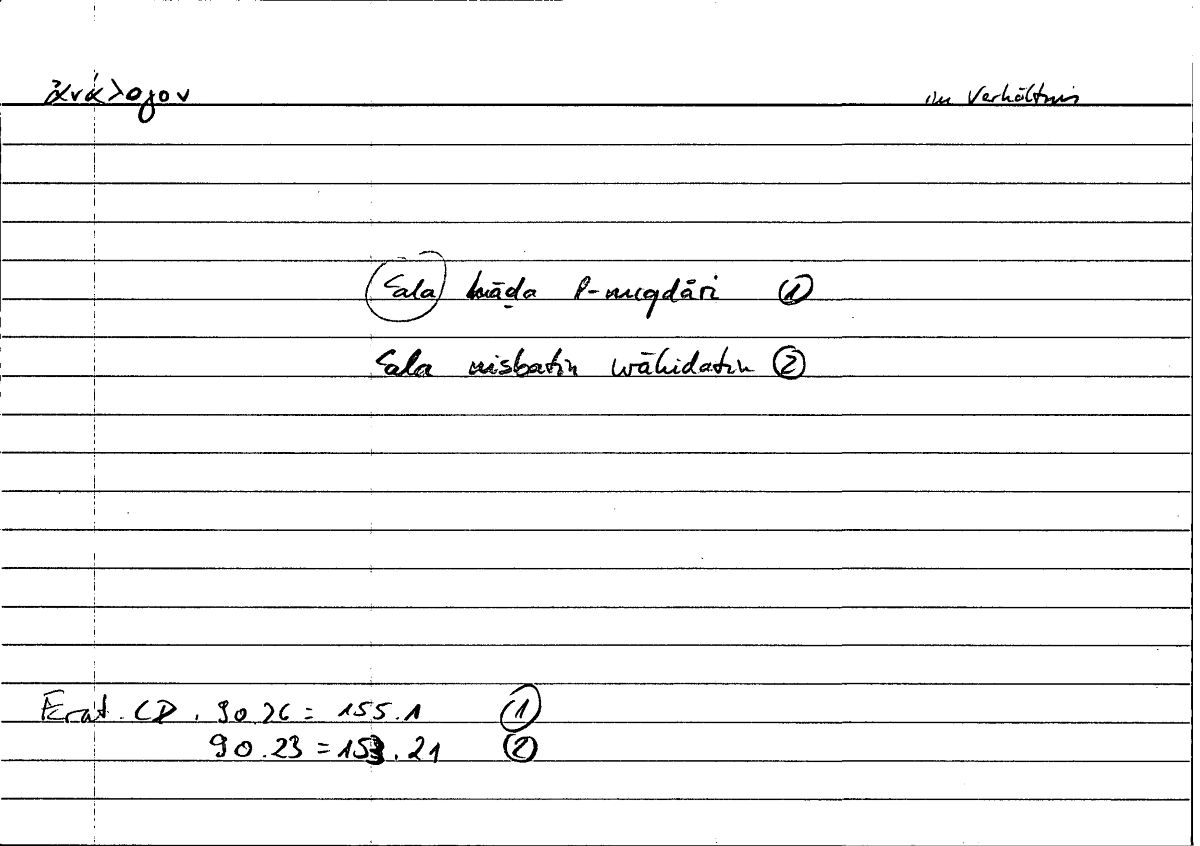 ἀνάλογον im Verhältnis
ʿala hāḏa l-miqdāri ①
ʿala nisbatin wāḥidatin ②
Erat. CD. 90.26 = 155.1 ①
90.23 = 153.21 ②